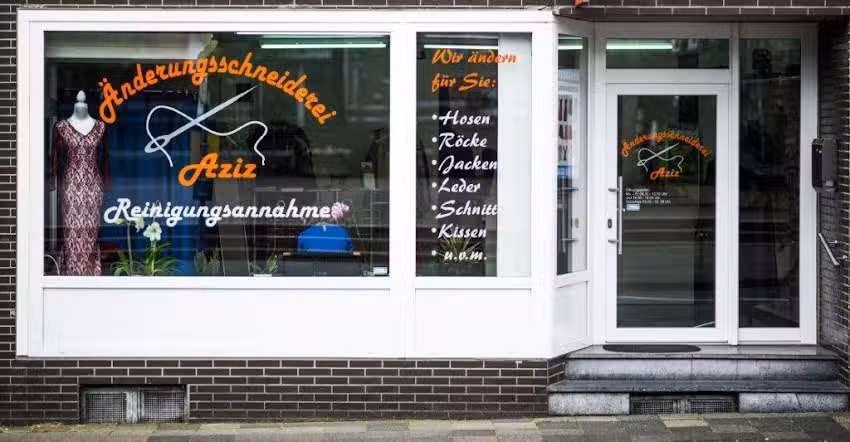 Änderungsschneiderei
Aziz
Reinigungsannahme
Wir ändern
für Sie:
• Hosen
• Röcke
• Jacken
• Leder
• Schnitt
• Kissen
• u.v.m.
Änderungsschneiderei
Aziz